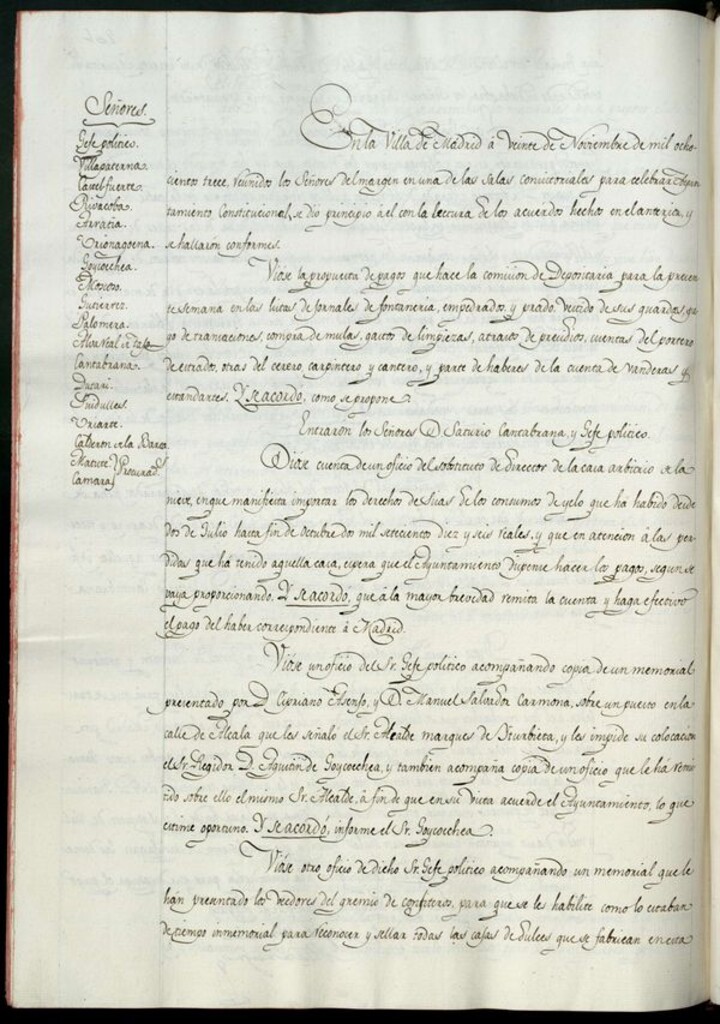 Señores.
Gefe politico.
Villapaterna.
Castelfuerte.
Rivacoba.
Arratia.
Urionagoena.
Goycoechea.
Moscoso.
Gutierrez.
Palomera.
Cantabrana.
Ducari.
Guidulles.
Uriarte.
Calderon de la Barca
Matute. Procurad.s
Camara
En la Villa de Madrid á veinte de Noviembre de mil ocho-
cientos trece, reunidos los Señores del margen en una de las salas consistoriales para celebrar Ayun-
tamiento Constitucional, se dio principio á el con la lectura de los acuerdos hechos en el anterior, y
se hallaron conformes.
Viose la propuesta de pagos que hace la comision de Depositaria para la presen-
te semana en las listas de jornales de fontaneria, empedrados, y prado, vestido de sus guardas, pa-
go de transaciones, compra de mulas, gastos de limpiezas, atrasos de presidios, cuentas del portero
de estrado, otras del cerero, carpintero y cantero, y parte de haberes de la cuenta de vanderas y
estandartes. Y se acordo, como se propone.
Entraron los Señores D. Saturio Cantabrana, y Gefe politico.
Diose cuenta de un oficio del substituto de Director de la casa arbitrio de la
nieve, en que manifiesta importar los derechos de sisas de los consumos de yelo que ha habido desde
dos de Julio hasta fin de Octubre dos mil setecientos diez y seis reales, y que en atencion á las per-
didas que há tenido aquella casa, espera que el Ayuntamiento dispense hacer los pagos, segun se
vaya proporcionando. Y se acordó, que á la mayor brevedad remita la cuenta y haga efectivo
el pago del haber correspondiente á Madrid.
Viose un oficio del Sr. Gefe politico acompañando copia de un memorial
presentado por D. Cipriano Asenso, y D. Manuel Salvador Carmona, sobre un puesto en la
calle de Alcala que les señaló el Sr. Alcalde marques de Iturbieta, y les impide su colocacion
el Sr. Regidor D. Agustin de Goycoechea, y tambien acompaña copia de un oficio que le há remi-
tido sobre ello el mismo Sr. Alcalde, á fin de que en su vista acuerde el Ayuntamiento, lo que
estime oportuno. Y se acordó, informe el Sr. Goycoechea.
Viose otro oficio de dicho Sr. Gefe politico acompañando un memorial que le
hán presentado los veedores del gremio de confiteros, para que se les habilite como lo estaban
de tiempo inmemorial para reconocer y sellar todas las cajas de dulces que se fabrican en esta